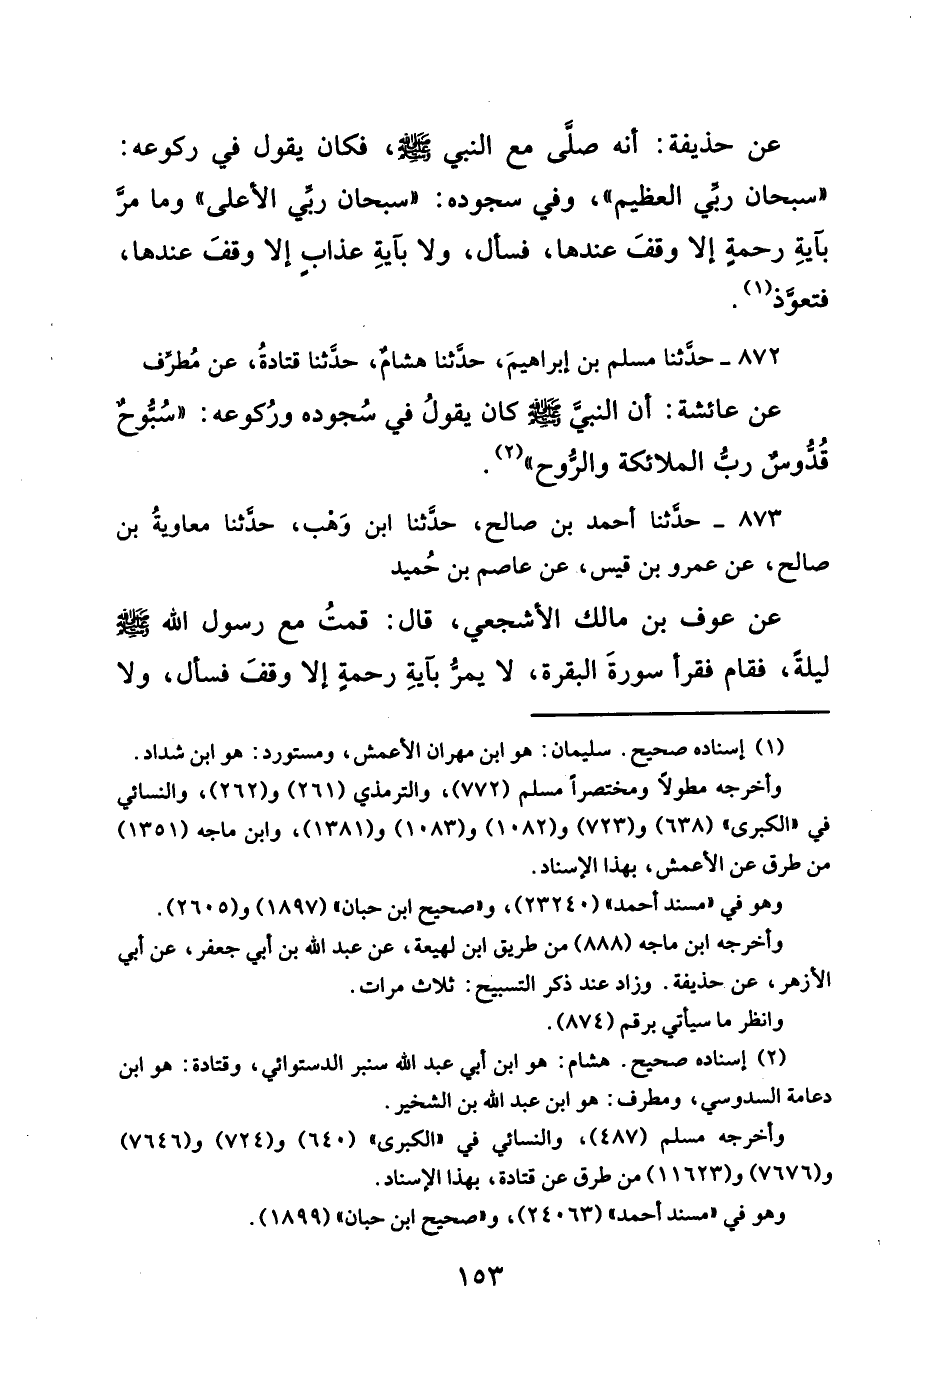 عن حذيفة: أنه صلَّى مع النبي ﷺ، فكان يقول في ركوعه:
«سبحان ربِّي العظيم»، وفي سجوده: «سبحان ربِّي الأعلى» وما مرَّ
بآيةِ رحمةٍ إلا وقفَ عندها، فسأل، ولا بآيةِ عذابٍ إلا وقفَ عندها،
فتعوَّذ(١).
٨٧٢ ـ حدَّثنا مسلم بن إبراهيمَ، حدَّثنا هشامٌ، حدَّثنا قتادةُ، عن مُطرِّف
عن عائشة: أن النبيَّ ﷺ كان يقولُ في سُجوده ورُكوعه: «سُبُّوحٌ
قُدُّوسٌ ربُّ الملائكة والرُّوح»(٢).
٨٧٣ ـ حدَّثنا أحمد بن صالح، حدَّثنا ابن وَهْب، حدَّثنا معاويةُ بن
صالح، عن عمرو بن قيس، عن عاصم بن حُميد
عن عوف بن مالك الأشجعي، قال: قمتُ مع رسول الله ﷺ
ليلةً، فقام فقرأ سورةَ البقرة، لا يمرُّ بآيةِ رحمةٍ إلا وقفَ فسأل، ولا
(١) إسناده صحيح. سليمان: هو ابن مهران الأعمش، ومستورد: هو ابن شداد.
وأخرجه مطولاً ومختصراً مسلم (٧٧٢)، والترمذي (٢٦١) و(٢٦٢)، والنسائي
في «الكبرى» (٦٣٨) و(٧٢٣) و(١٠٨٢) و(١٠٨٣) و(١٣٨١)، وابن ماجه (١٣٥١)
من طرق عن الأعمش، بهذا الإسناد.
وهو في «مسند أحمد» (٢٣٢٤٠)، و«صحيح ابن حبان» (١٨٩٧) و(٢٦٠٥).
وأخرجه ابن ماجه (٨٨٨) من طريق ابن لهيعة، عن عبد الله بن أبي جعفر، عن أبي
الأزهر، عن حذيفة. وزاد عند ذكر التسبيح: ثلاث مرات.
وانظر ما سيأتي برقم (٨٧٤).
(٢) إسناده صحيح. هشام: هو ابن أبي عبد الله سنبر الدستوائي، وقتادة: هو ابن
دعامة السدوسي، ومطرف: هو ابن عبد الله بن الشخير.
وأخرجه مسلم (٤٨٧)، والنسائي في «الكبرى» (٦٤٠) و(٧٢٤) و(٧٦٤٦)
و(٧٦٧٦) و(١١٦٢٣) من طرق عن قتادة، بهذا الإسناد.
وهو في «مسند أحمد» (٢٤٠٦٣)، و«صحيح ابن حبان» (١٨٩٩).
١٥٣